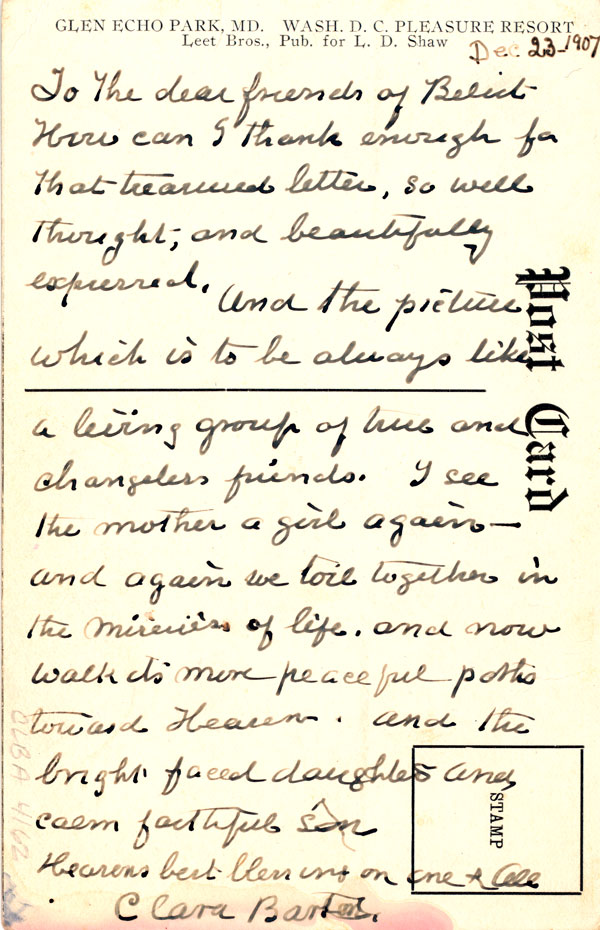 GLEN ECHO PARK, MD. WASH. D. C. PLEASURE RESORT
Leet Bros., Pub. for L. D. Shaw
Dec 23-1907
To the dear friends of Beloit
How can I thank enough for
that treasured letter, so well
thought, and beautifully
expressed. And the picture
which is to be always like
Post Card
a living group of true and
changeless friends. I see
the mother a girl again—
and again we toil together in
the miseries of life. and now
walk its more peaceful paths
toward Heaven. and the
bright faced daughters and,
calm faithful son
STAMP
Heavens best blessing on one & all
Clara Barton.
CLBA 4162